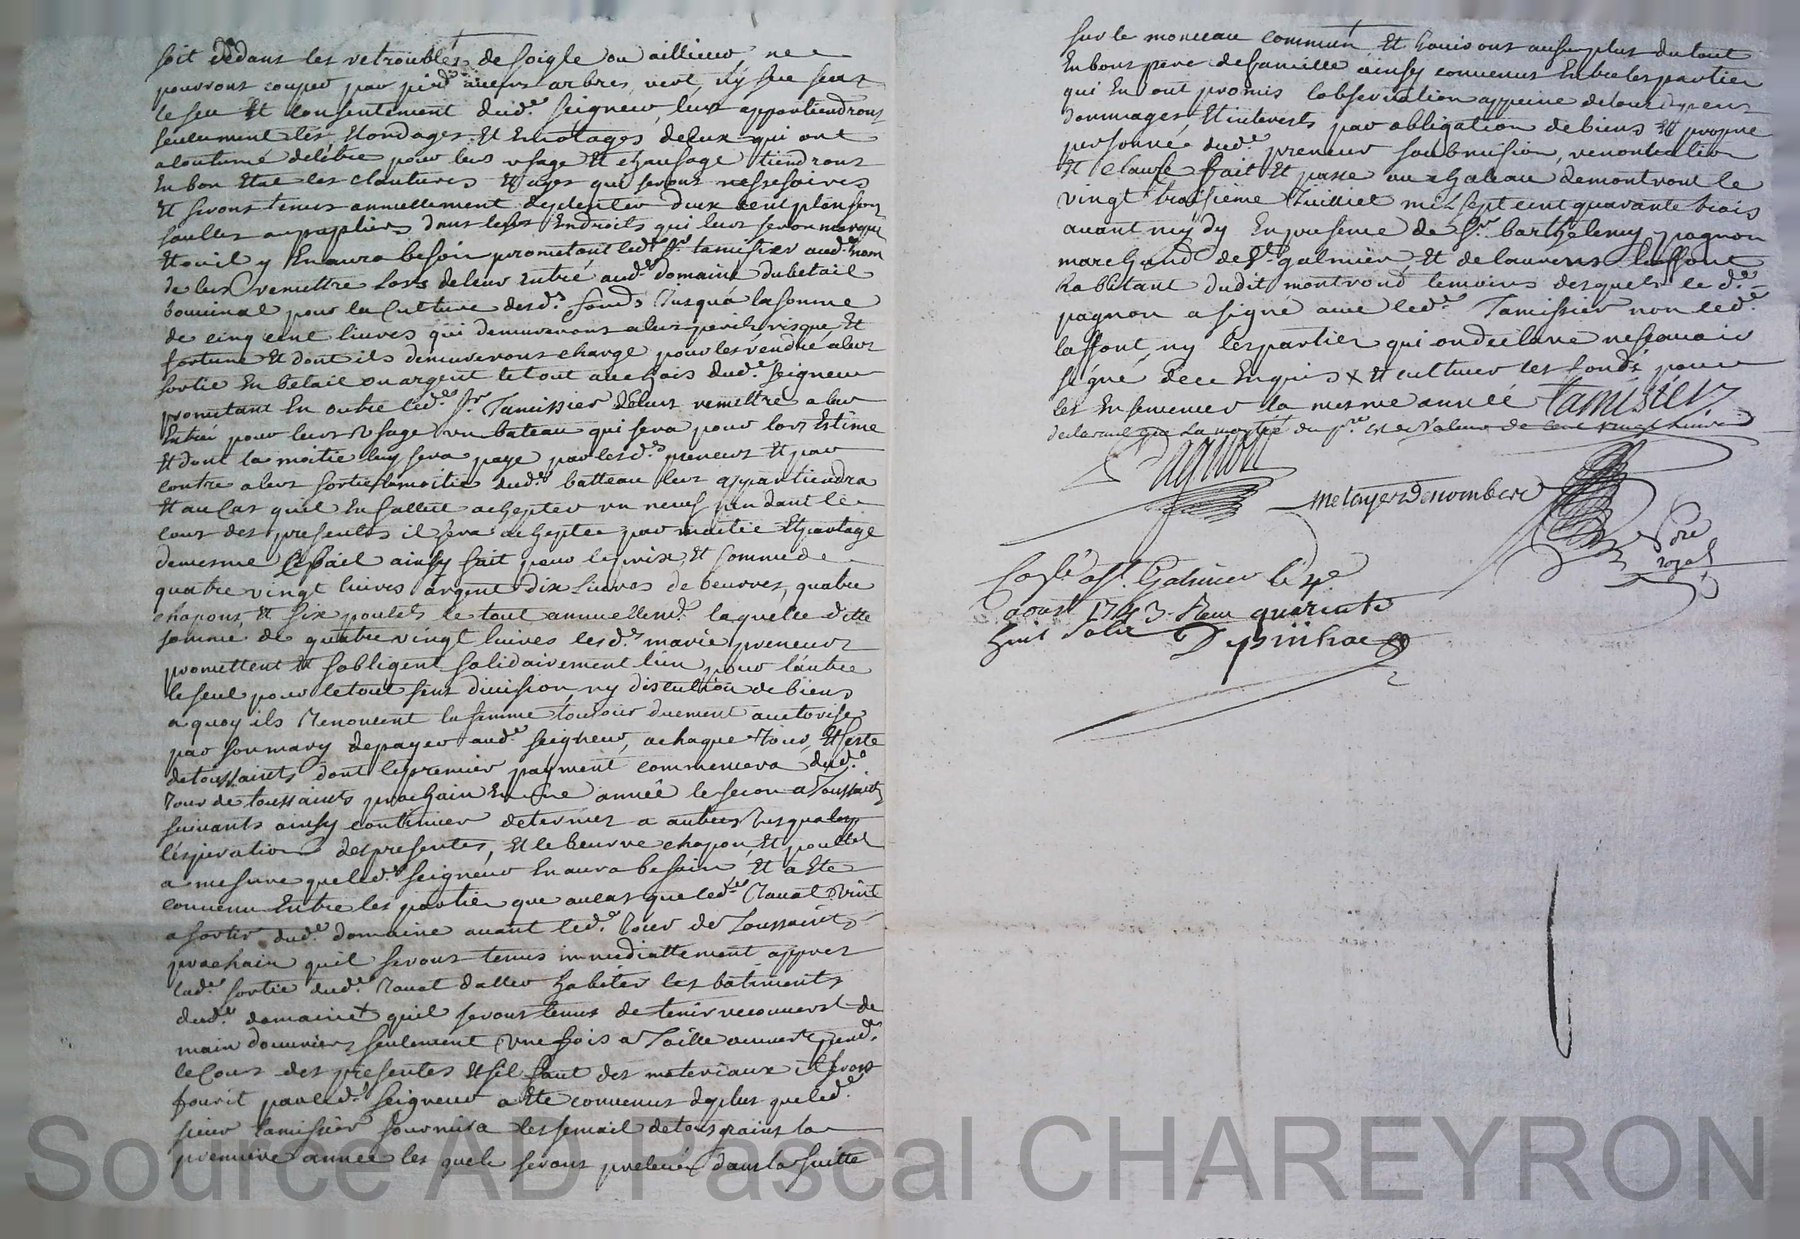 soit dedans les retroubles de soigle ou aillieur, ne
pouvront couper par pied aucuns arbres, vert, ny sec sens
le seu et consentement dud. seigneur, leur appartiendront
seulement les Etondages et Emotages de ceux qui ont
acoutumé de lêtre pour leur usage et chaufage tiendront
En bon Etat les clautures et ayes qui seront nessesaires
et seront tenus annuellement de planter deux cent
saulles ou peupliers dans les Endroits qui leur seron marqué
Et ou il y En aura besoin promettant led. Sr. tamissier aud. nom
de leur remettre lors de leur Entré aud. domaine du betail
bouminal pour la culture desd. fonds Jusqu'a la somme
de cinq cent livres qui demureront a leur peril, risque Et
fortune Et dont ils demureront charge pour les rendre a leur
sortie En betail ou argent le tout au chois dud. seigneur
promettant En outre led. Sr. Tamissier de leur remettre a leur
Entrée pour leur usage un bateau qui sera pour lors Estimé
Et dont la moitié luy sera payé par lesd. preneurs Et par
contre a leur sortie la moitié dud. batteau leur appartiendra
Et au cas quil En fallut achepter un neuf pendant le
cour des presentes il sera achepté par moitié Et partage
de mesme le bail ainsy fait pour le prix Et somme de
quatre vingt livres argent dix livres de beurres, quatre
chapons, Et six poulets le tout annuellemt. laquelle ditte
somme de quatre vingt livres lesd. mariés preneurs
promettent Et sobligent solidairement lun pour lautre
le seul pour le tout sens division, ny discution de biens
a quoy ils Renoncent la femme toujour duement auctorisée
par son mary de payer aud. seigneur, a chaque Jour Et feste
de toussaints dont le premier payment commencera dud.
Jour de toussaints prochain En une année le secon a Toussaints
suivants ainsy continuer de termes a autres Jusqua
lexpiration des presentes, Et le beurre chapon, Et poulets
a mesure que led. seigneur En aura besoin Et a Ete
convenu Entre les parties que au cas que led. Ravat vint
a sortir dud. domaine avant led. Jour de Toussaints
prochain quil seront tenus immediattement apprès
lad. sortie dud. Ravat daller habiter les batiments
dud. domaine Et quil seront tenus de tenir reconvert de
main douvriers seulement une fois a taille ouvert pend.
le cour des presentes Et sil faut des materiaux il seront
fournit par led. seigneur a Ete convenus de plus que led.
sieur tamissier fournira les semail de tous grains la
premiere année les quels seront prelevé dans la suitte
sur le monceau commun Et Jouiront au surplus du tout
En bons pere de famille ainsy convenus Entre les parties
qui En ont promis l'observation appeine de tous depens
dommages Et interests par obligation de biens Et propre
personne dud. preneur soubmision, renontiation
Et clause fait Et passé au chateau de montrond le
vingt troisieme Juilliet mil sept cent quarante trois
avant mydy En presence de Sr. barthelemy pagnon
marchand de St. galmier Et de laurens laffont
habitant dudit montrond temoins desquels le d.
pagnon a signé avec led. Tamissier non led.
laffont, ny les parties qui on declaré ne scavoir
signé de ce Enquis x Et cultiver les fonds pour
les Ensemencer la mesme année Tamisier
declarant que la moitié du pr. est de valeur de cent vingt livres
Pagnon
metayer denombere
No.re
royal
Conlé a St. Galmier le 4e
aoust 1743. Reçu quarente
huit sols Depinhac
Source AD Pascal CHAREYRON